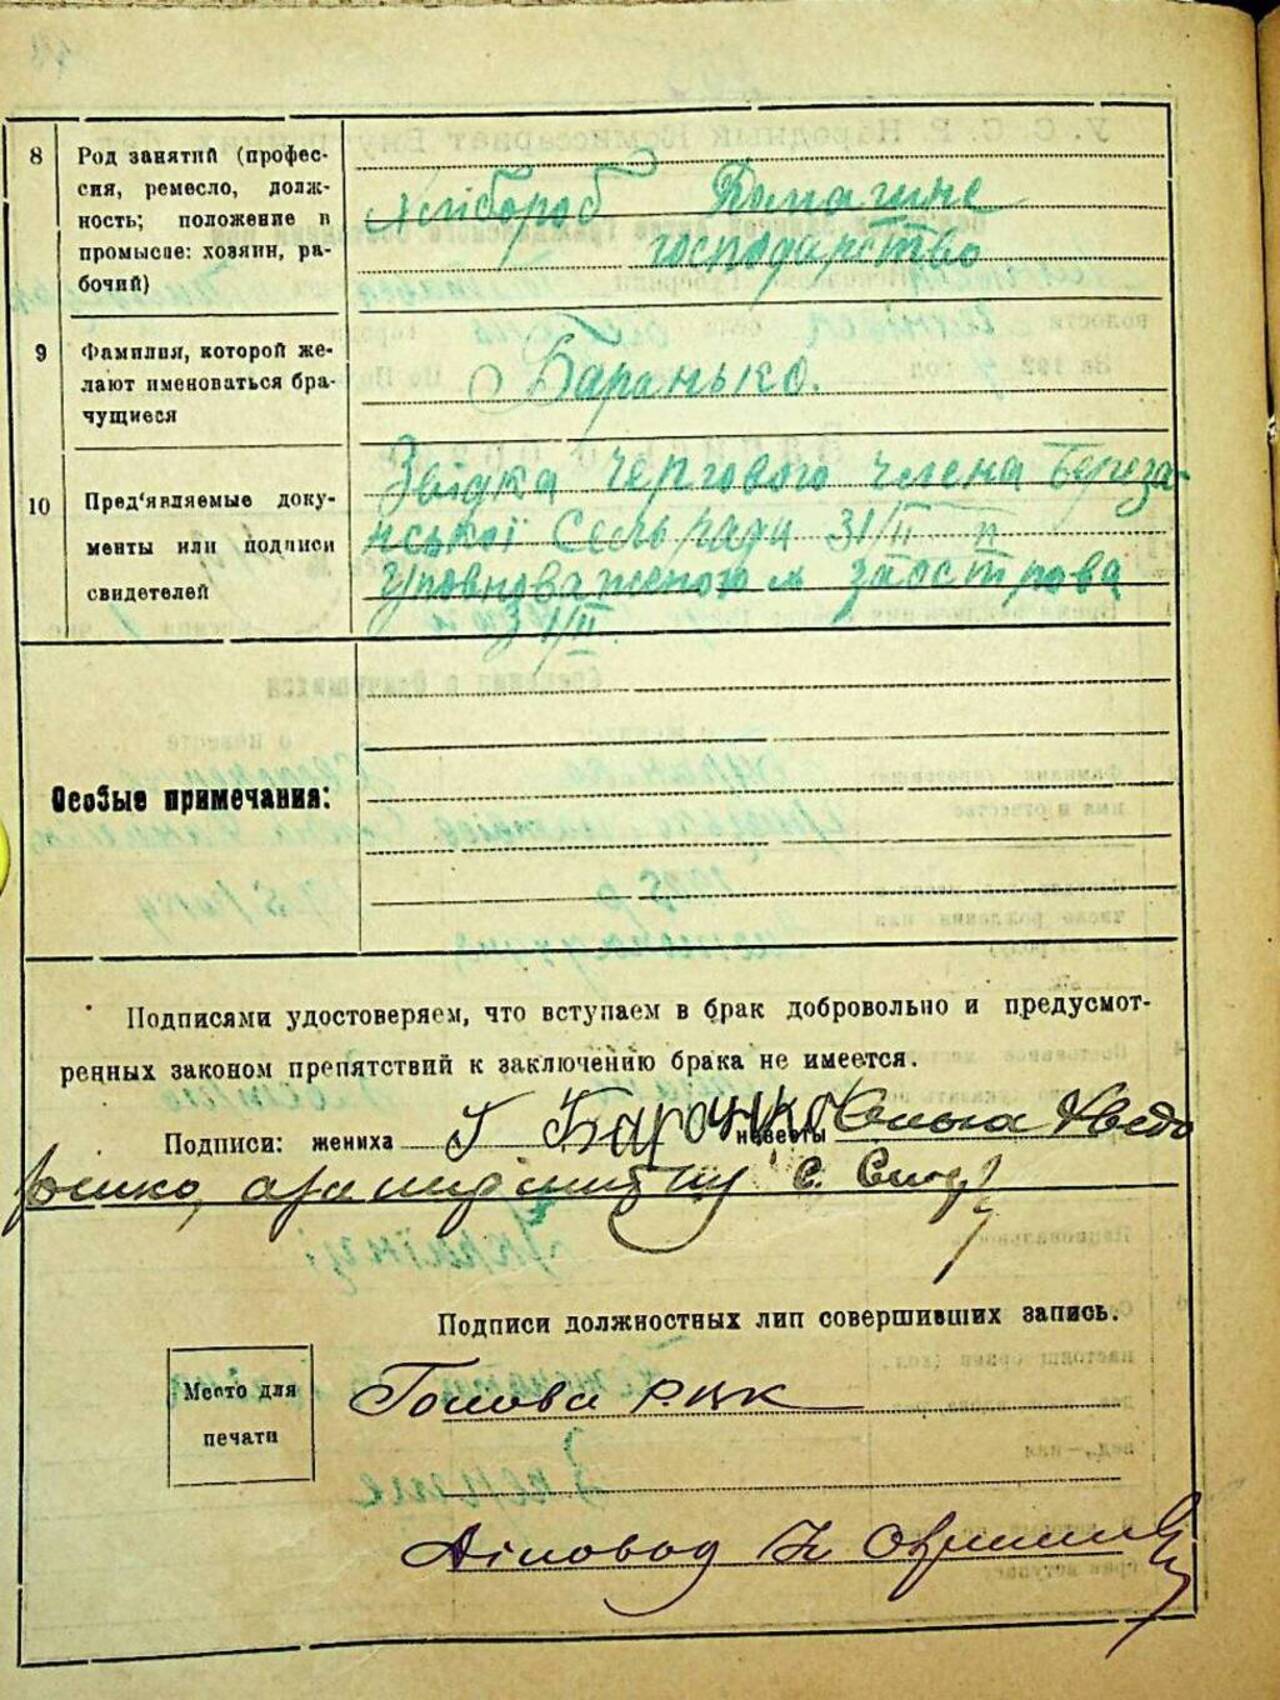 8
Род занятий (профес-
сия, ремесло, долж-
ность; положение в
промысле: хозяин, ра-
бочий)
Хлібороб Домашнє
господарство
9
Фамилия, которой же-
лают именоваться бра-
чущиеся
Баранько.
10
Пред'являемые доку-
менты или подписи
свидетелей
Звідка чергового члена Береза-
нської Сельради 31/II
Уповноваженого
31/II
Особые примечания:
Подписями удостоверяем, что вступаем в брак добровольно и предусмот-
ренных законом препятствий к заключению брака не имеется.
Подписи: жениха Г Баранько невесты
Подписи должностных лип совершивших запись.
Место для
печати
Голова
Діловод